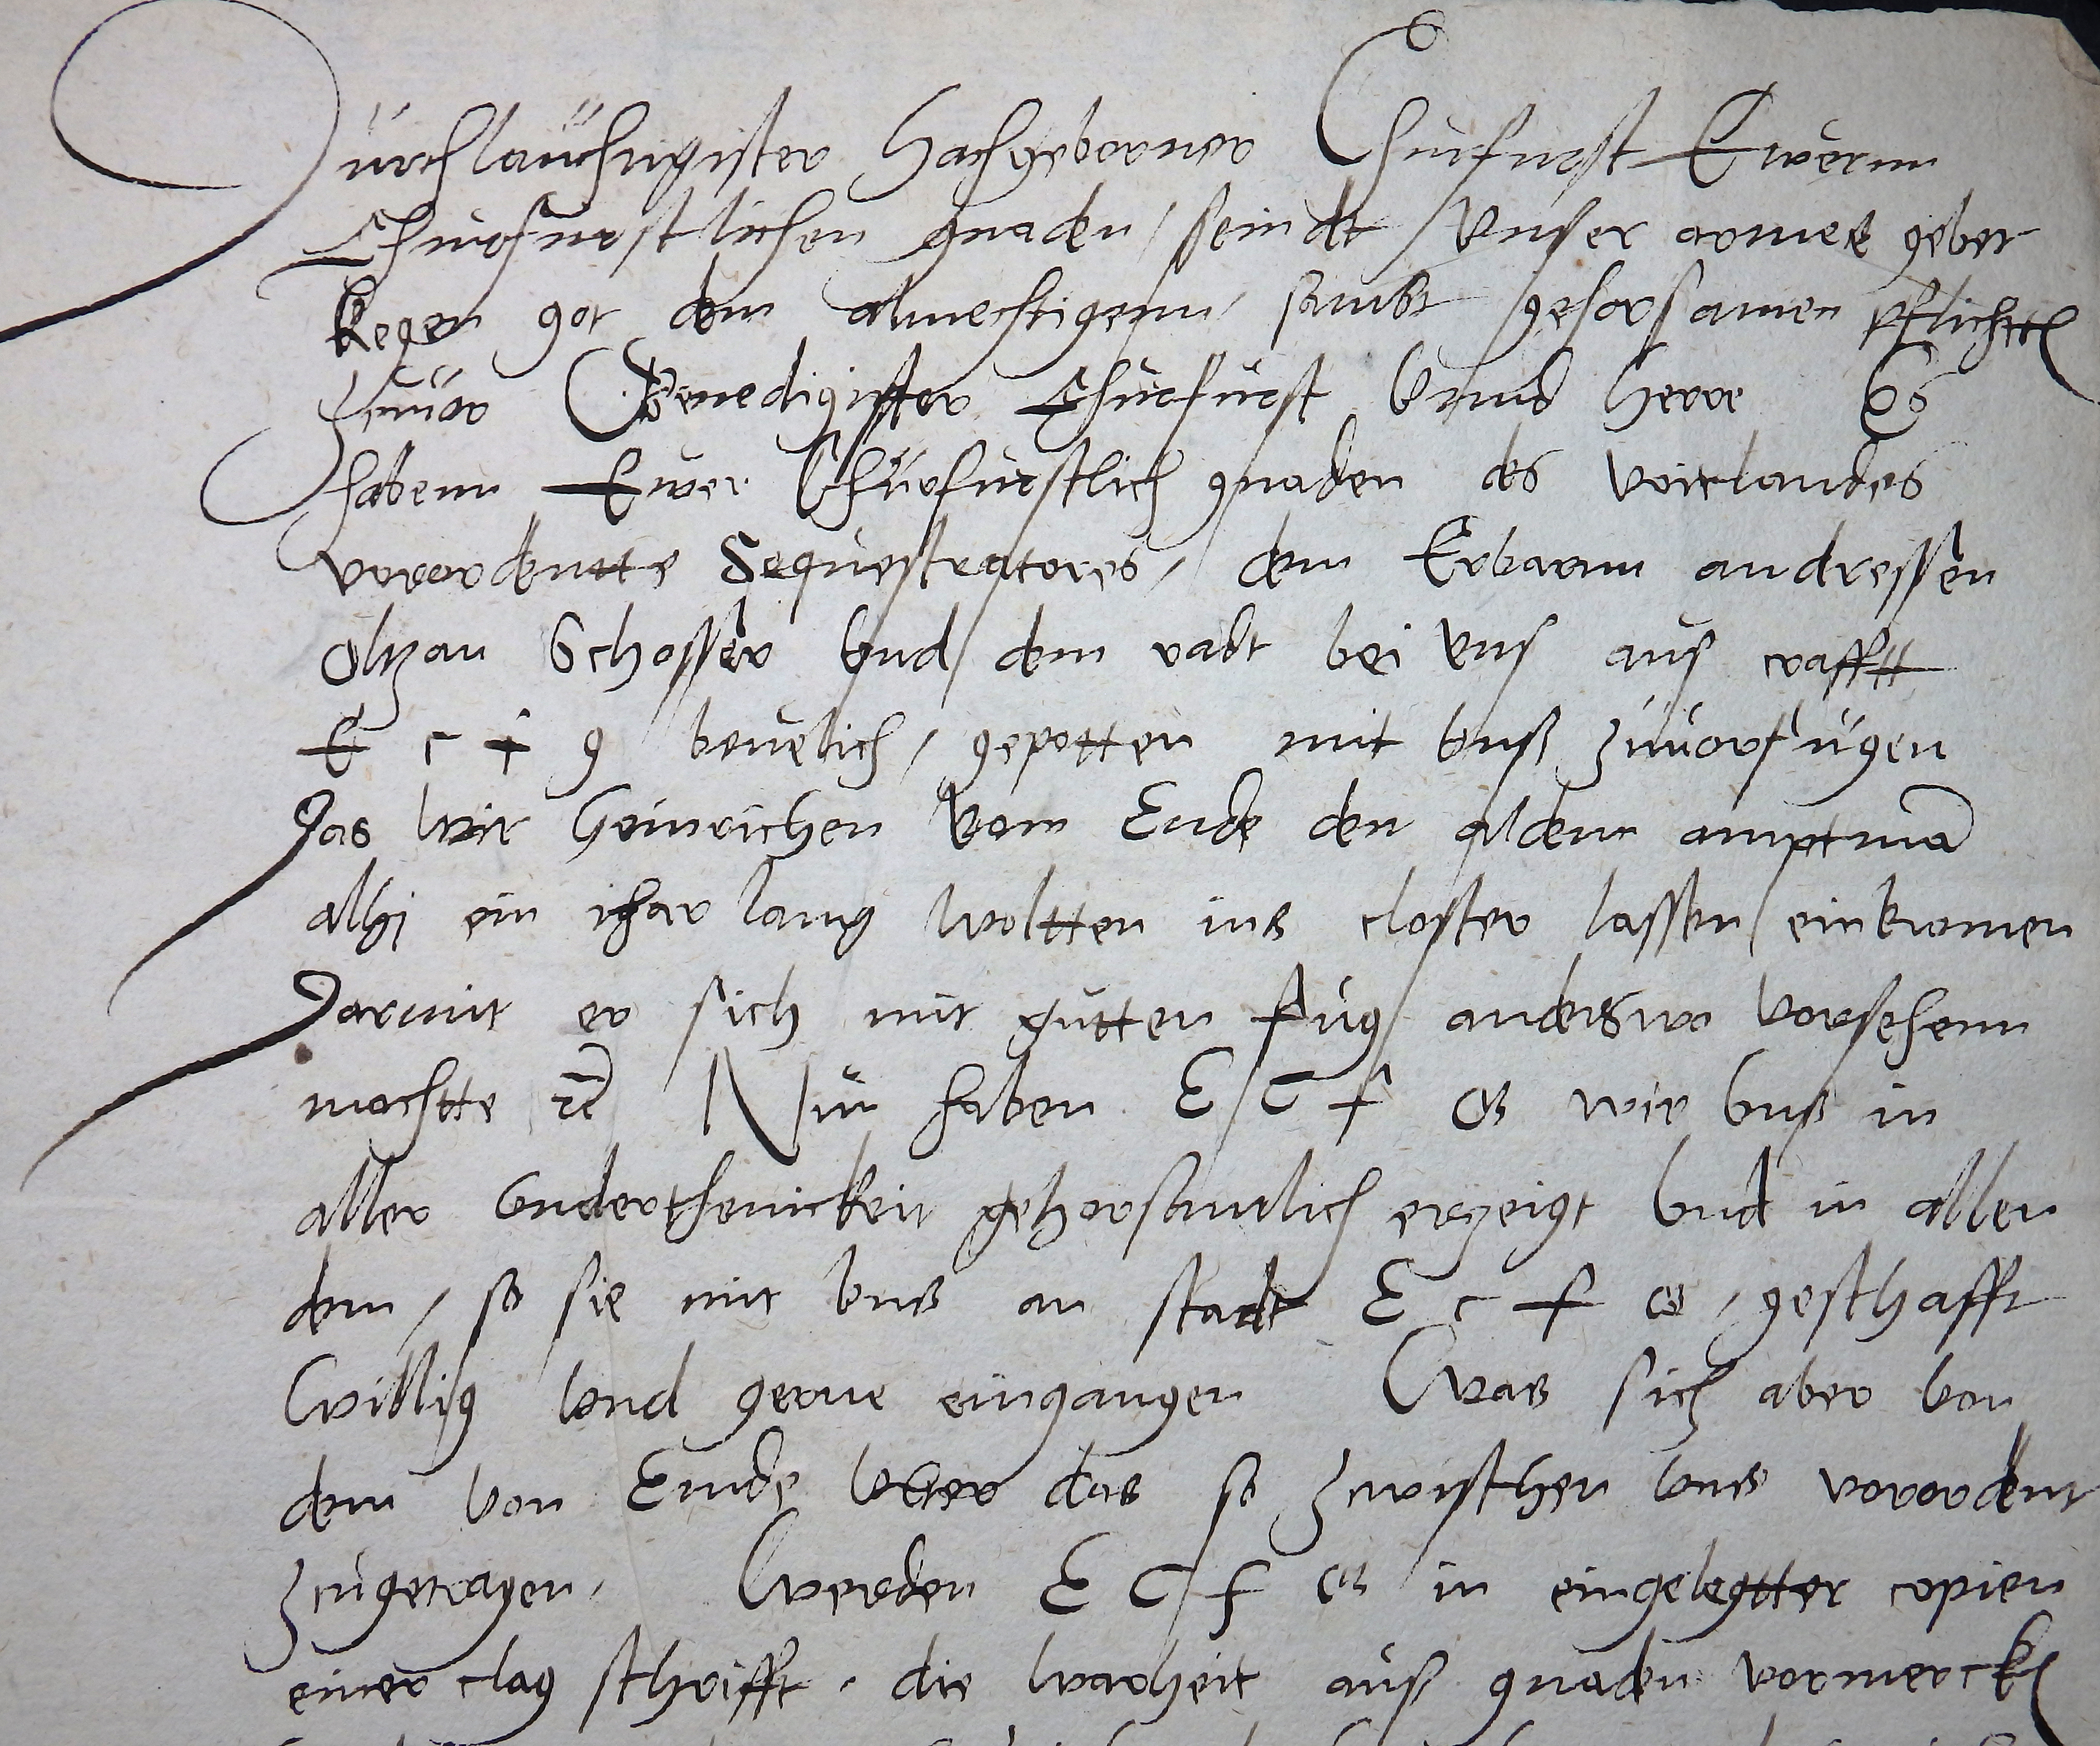 Durchlauchtigister Hochgeborner Churfurst Ewernn
Churfurstlichen gnaden / seindt Vnser armes gebet
kegen got dem almechtigenn, sampt gehorsamen pflichtten
zuuor Genedigister Churfurst Vnnd Herre Es
habenn Ewer Churfurstlich gnaden des voitlandes
vorordentte Sequestratores, dem Erbarnn andressen
Schosser Vnd dem radt bei vns aus crafftt
E c f g beuelich, gepotten mit vnß zuuorfugen
Das wir Heinrichen Vom Ende den aldenn amptman
alhj ein ihar lang woltten ins closter lassen einkomen
Darmit er sich mit gutten fug anderswo vorsehenn
mochtte Nun haben E C f G wir vnß in
aller Vnderthenickeit gehorsamlich erzeigt Vnd in allen
dem, so sie mit vns an stadt E c f G, geschafft
Willig vnd gerne eingangen Was sich aber von
dem von Ende Vber das so zwischen vns vorordent
zugetragen, Werden E C f G in eingelegtter copien
einer clag schrifft, die warheit auß gnaden vormercken